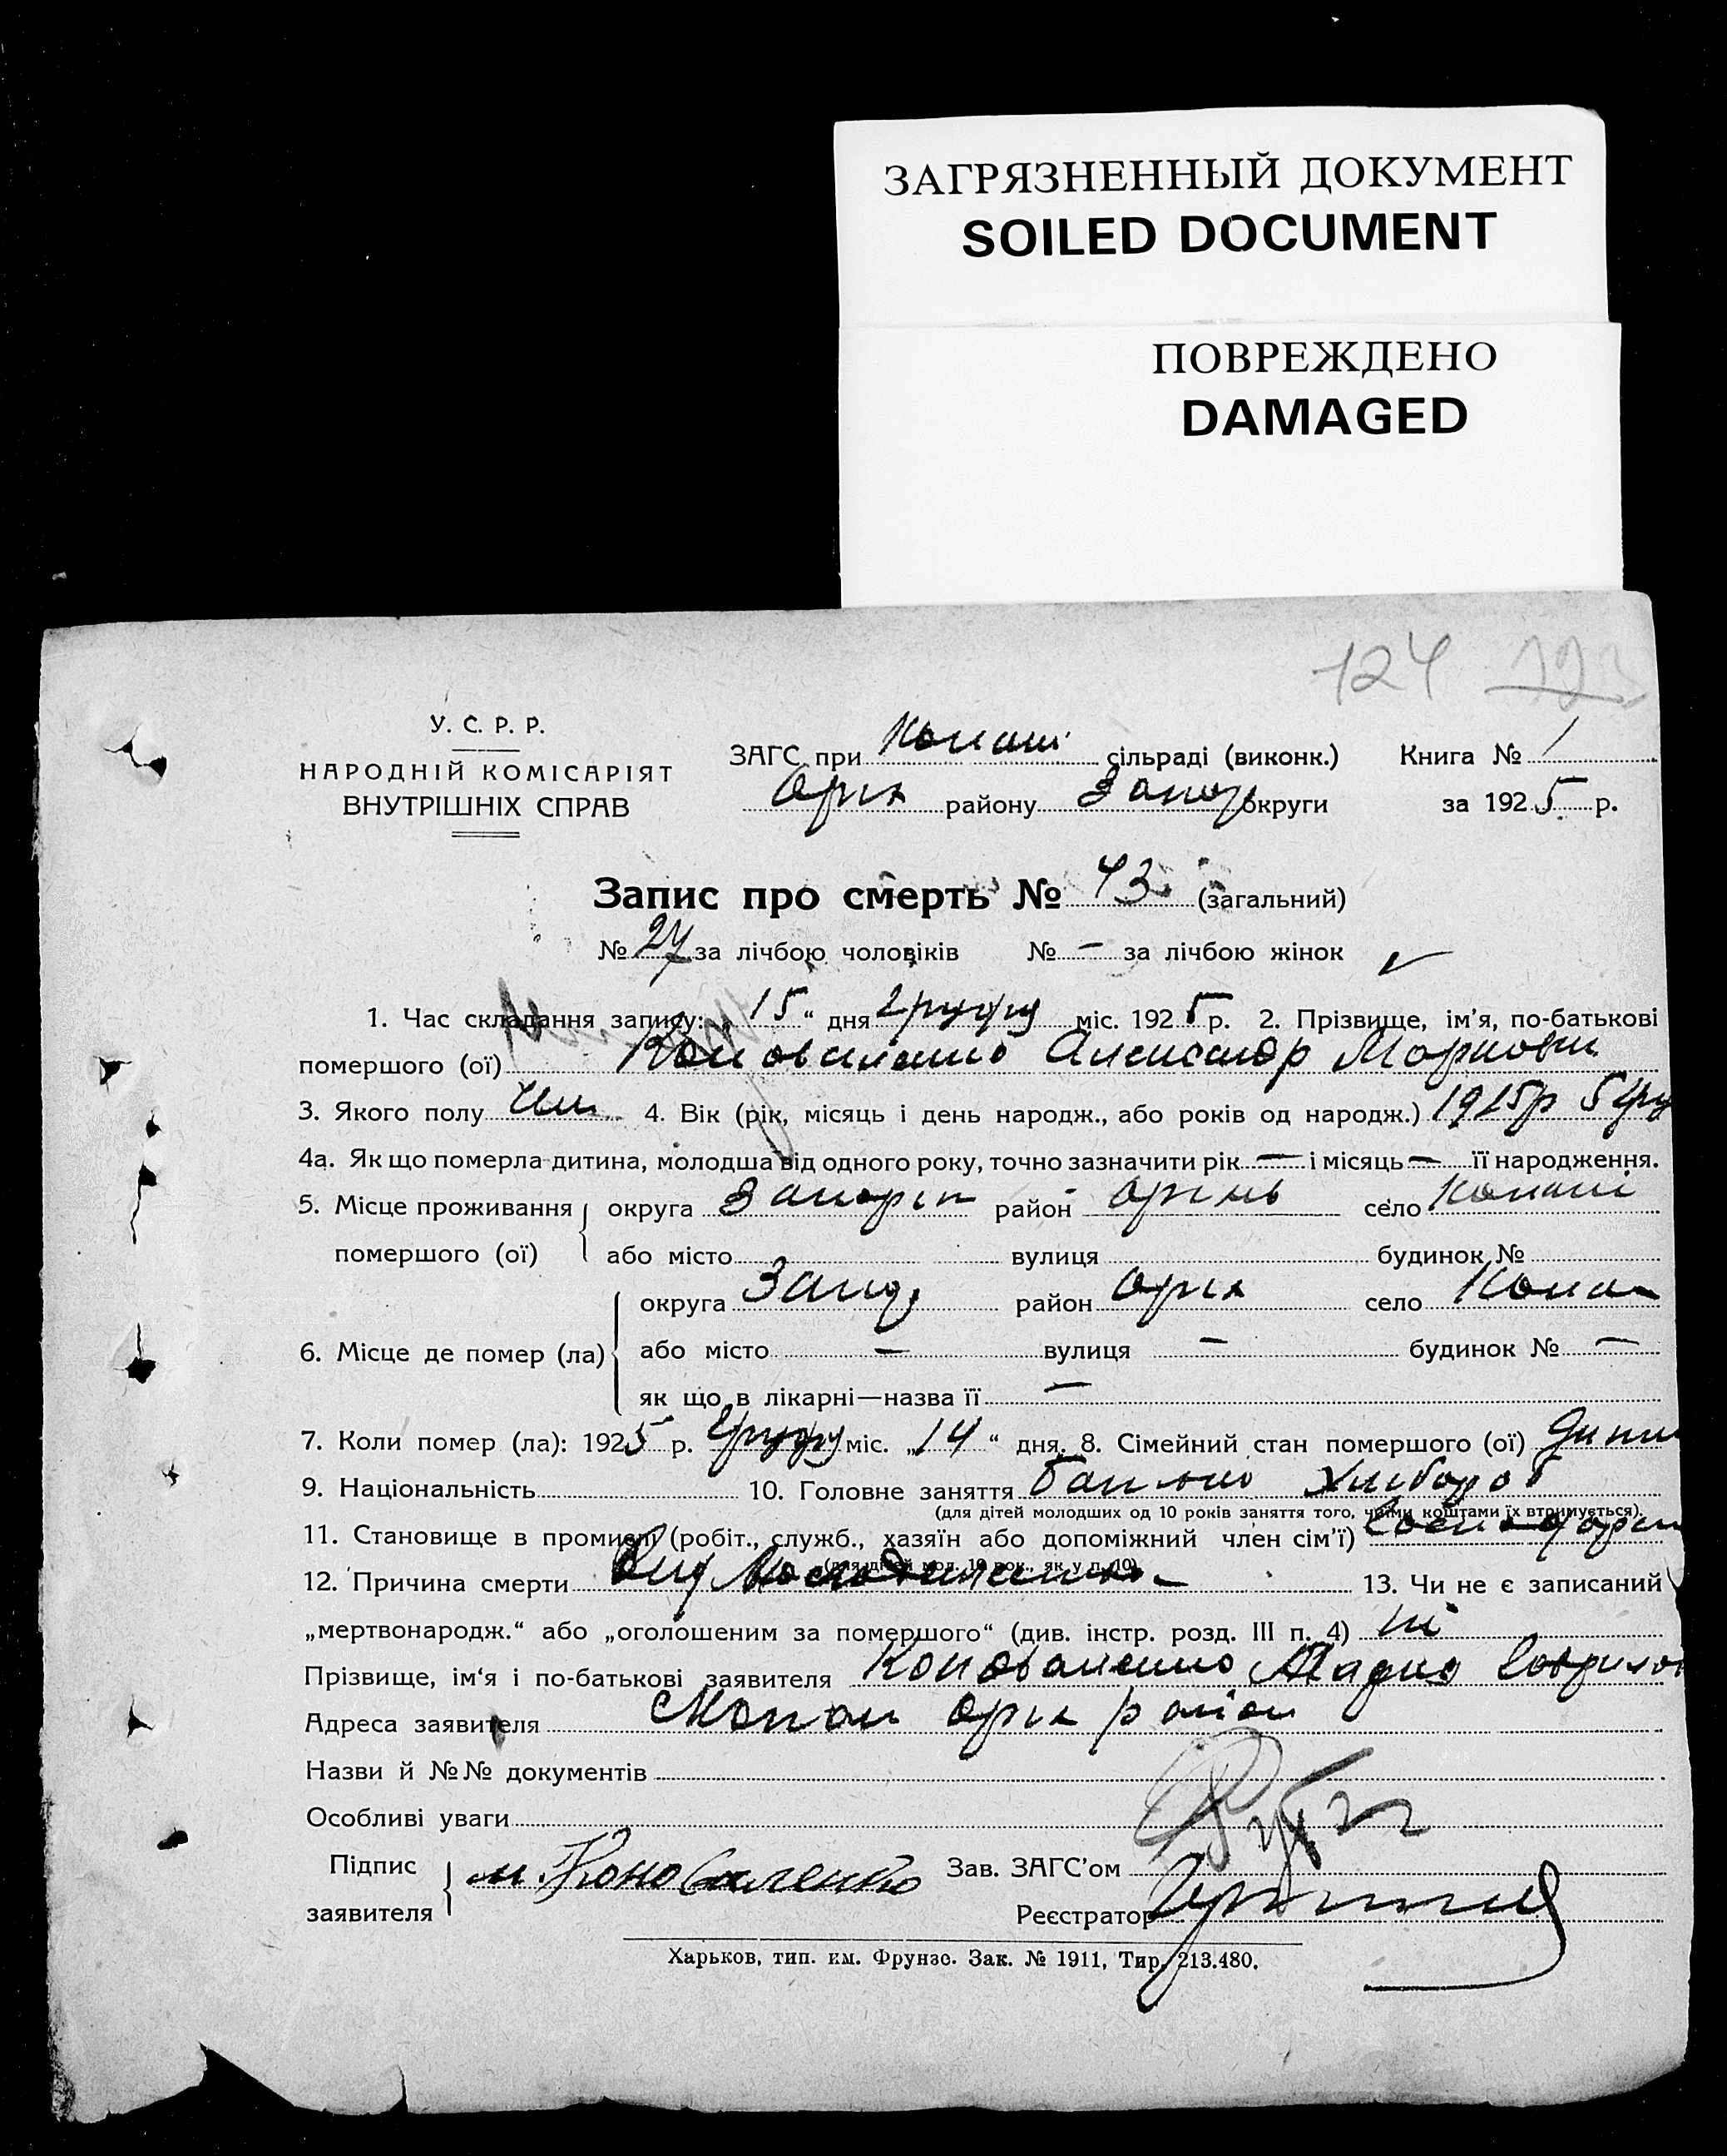 ЗАГРЯЗНЕННЫЙ ДОКУМЕНТ
SOILED DOCUMENT
ПОВРЕЖДЕНО
DAMAGED
124
У. С. Р. Р.
НАРОДНІЙ КОМІСАРІЯТ
ВНУТРІШНІХ СПРАВ
ЗАГС при Копані сільраді (виконк.) Книга № 1
Оріх району Запор округи за 1925 р.
Запис про смерть № 43 (загальний)
№ 27 за лічбою чоловіків № — за лічбою жінок
1. Час складання запису: „15“ дня грудня міс. 1925 р. 2. Прізвище, ім'я, по-батькові
помершого (ої) Коноваленко Александр Маркови
3. Якого полу Чол 4. Вік (рік, місяць і день народж., або років од народж.) 1925р 5 гру
4а. Як що померла дитина, молодша від одного року, точно зазначити рік — і місяць — її народження.
5. Місце проживання округа Запоріж район Оріхів село Копані
помершого (ої) або місто вулиця будинок №
округа Запор район Оріх село Копан
6. Місце де помер (ла) або місто — вулиця — будинок № —
як що в лікарні—назва її —
7. Коли помер (ла): 1925 р. грудня міс. „14“ дня. 8. Сімейний стан помершого (ої) Дити
9. Національність 10. Головне заняття Батько Хлібороб
(для дітей молодших од 10 років заняття того, чиїми коштами їх втримується).
11. Становище в промислі (робіт., служб., хазяїн або допоміжний член сім'ї)
(для дітей мол. 10 рок., як у п. 10)
12. Причина смерти Від 13. Чи не є записаний
„мертвонародж.“ або „оголошеним за помершого“ (див. інстр. розд. III п. 4) ні
Прізвище, ім'я і по-батькові заявителя Коноваленко Марко
Адреса заявителя Копани Оріх район
Назви й №№ документів
Особливі уваги
Підпис заявителя м. Коноваленко Зав. ЗАГС'ом
Реєстратор
Харьков, тип. им. Фрунзе. Зак. № 1911, Тир. 213.480.